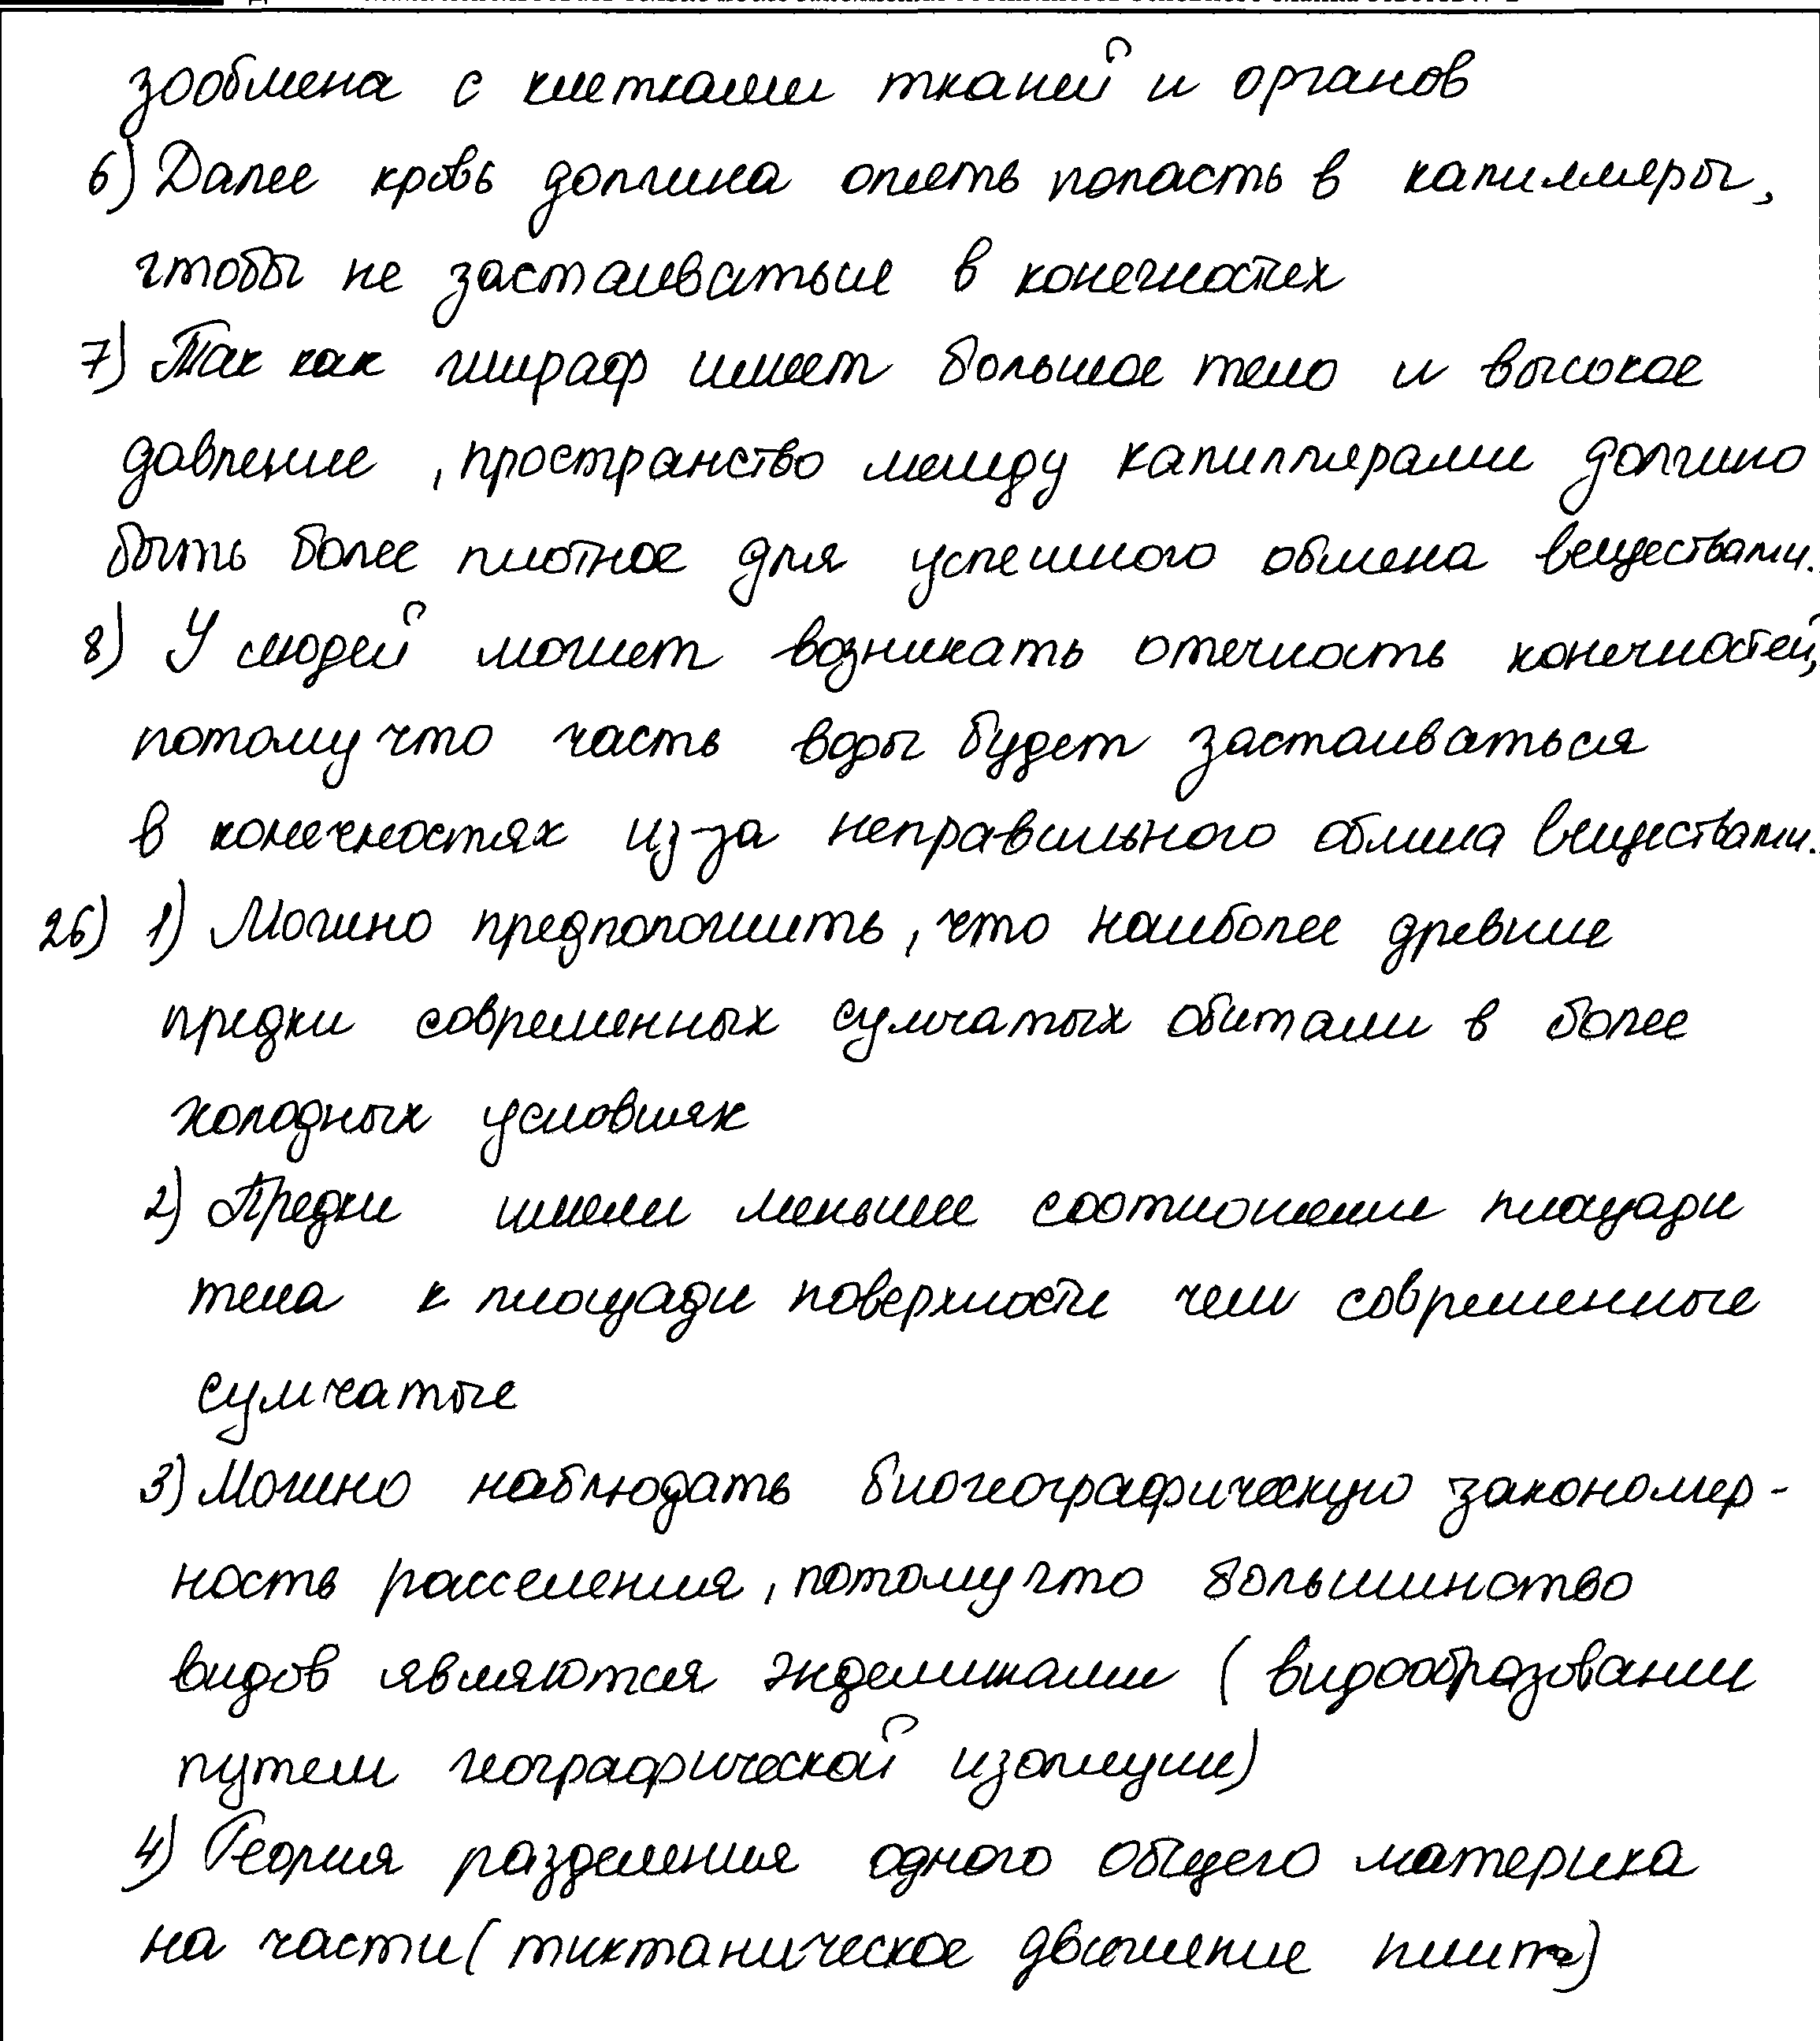 зообмена с клетками тканей и органов
6) Далее кровь должна опять попасть в капилляры,
чтобы не застаиваться в конечностях
7) Так как жираф имеет большое тело и высокое
давление, пространство между капиллярами должно
быть более плотное для успешного обмена веществами.
8) У людей может возникать отечность конечностей,
потому что часть воды будет застаиваться
в конечностях из-за неправильного обмена веществами.
26) 1) Можно предположить, что наиболее древние
предки современных сумчатых обитали в более
холодных условиях
2) Предки имели меньшее соотношение площади
тела к площади поверхности чем современные
сумчатые
3) Можно наблюдать биогеографическую закономер-
ность расселения, потому что большинство
видов являются эндемиками (видообразовании
путем географической изоляции)
4) Теория разделения одного общего материка
на части (тиктаническое движение плит)